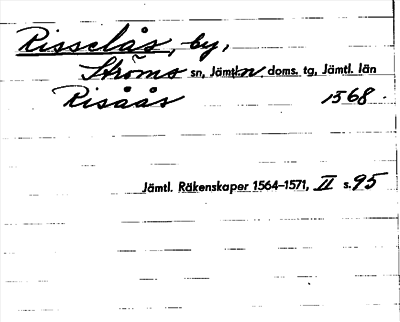 Risselås, by,
Ströms sn, Jämtl.n doms. tg, Jämtl. län
Risåås 1568.
Jämtl. Räkenskaper 1564–1571, II s. 95